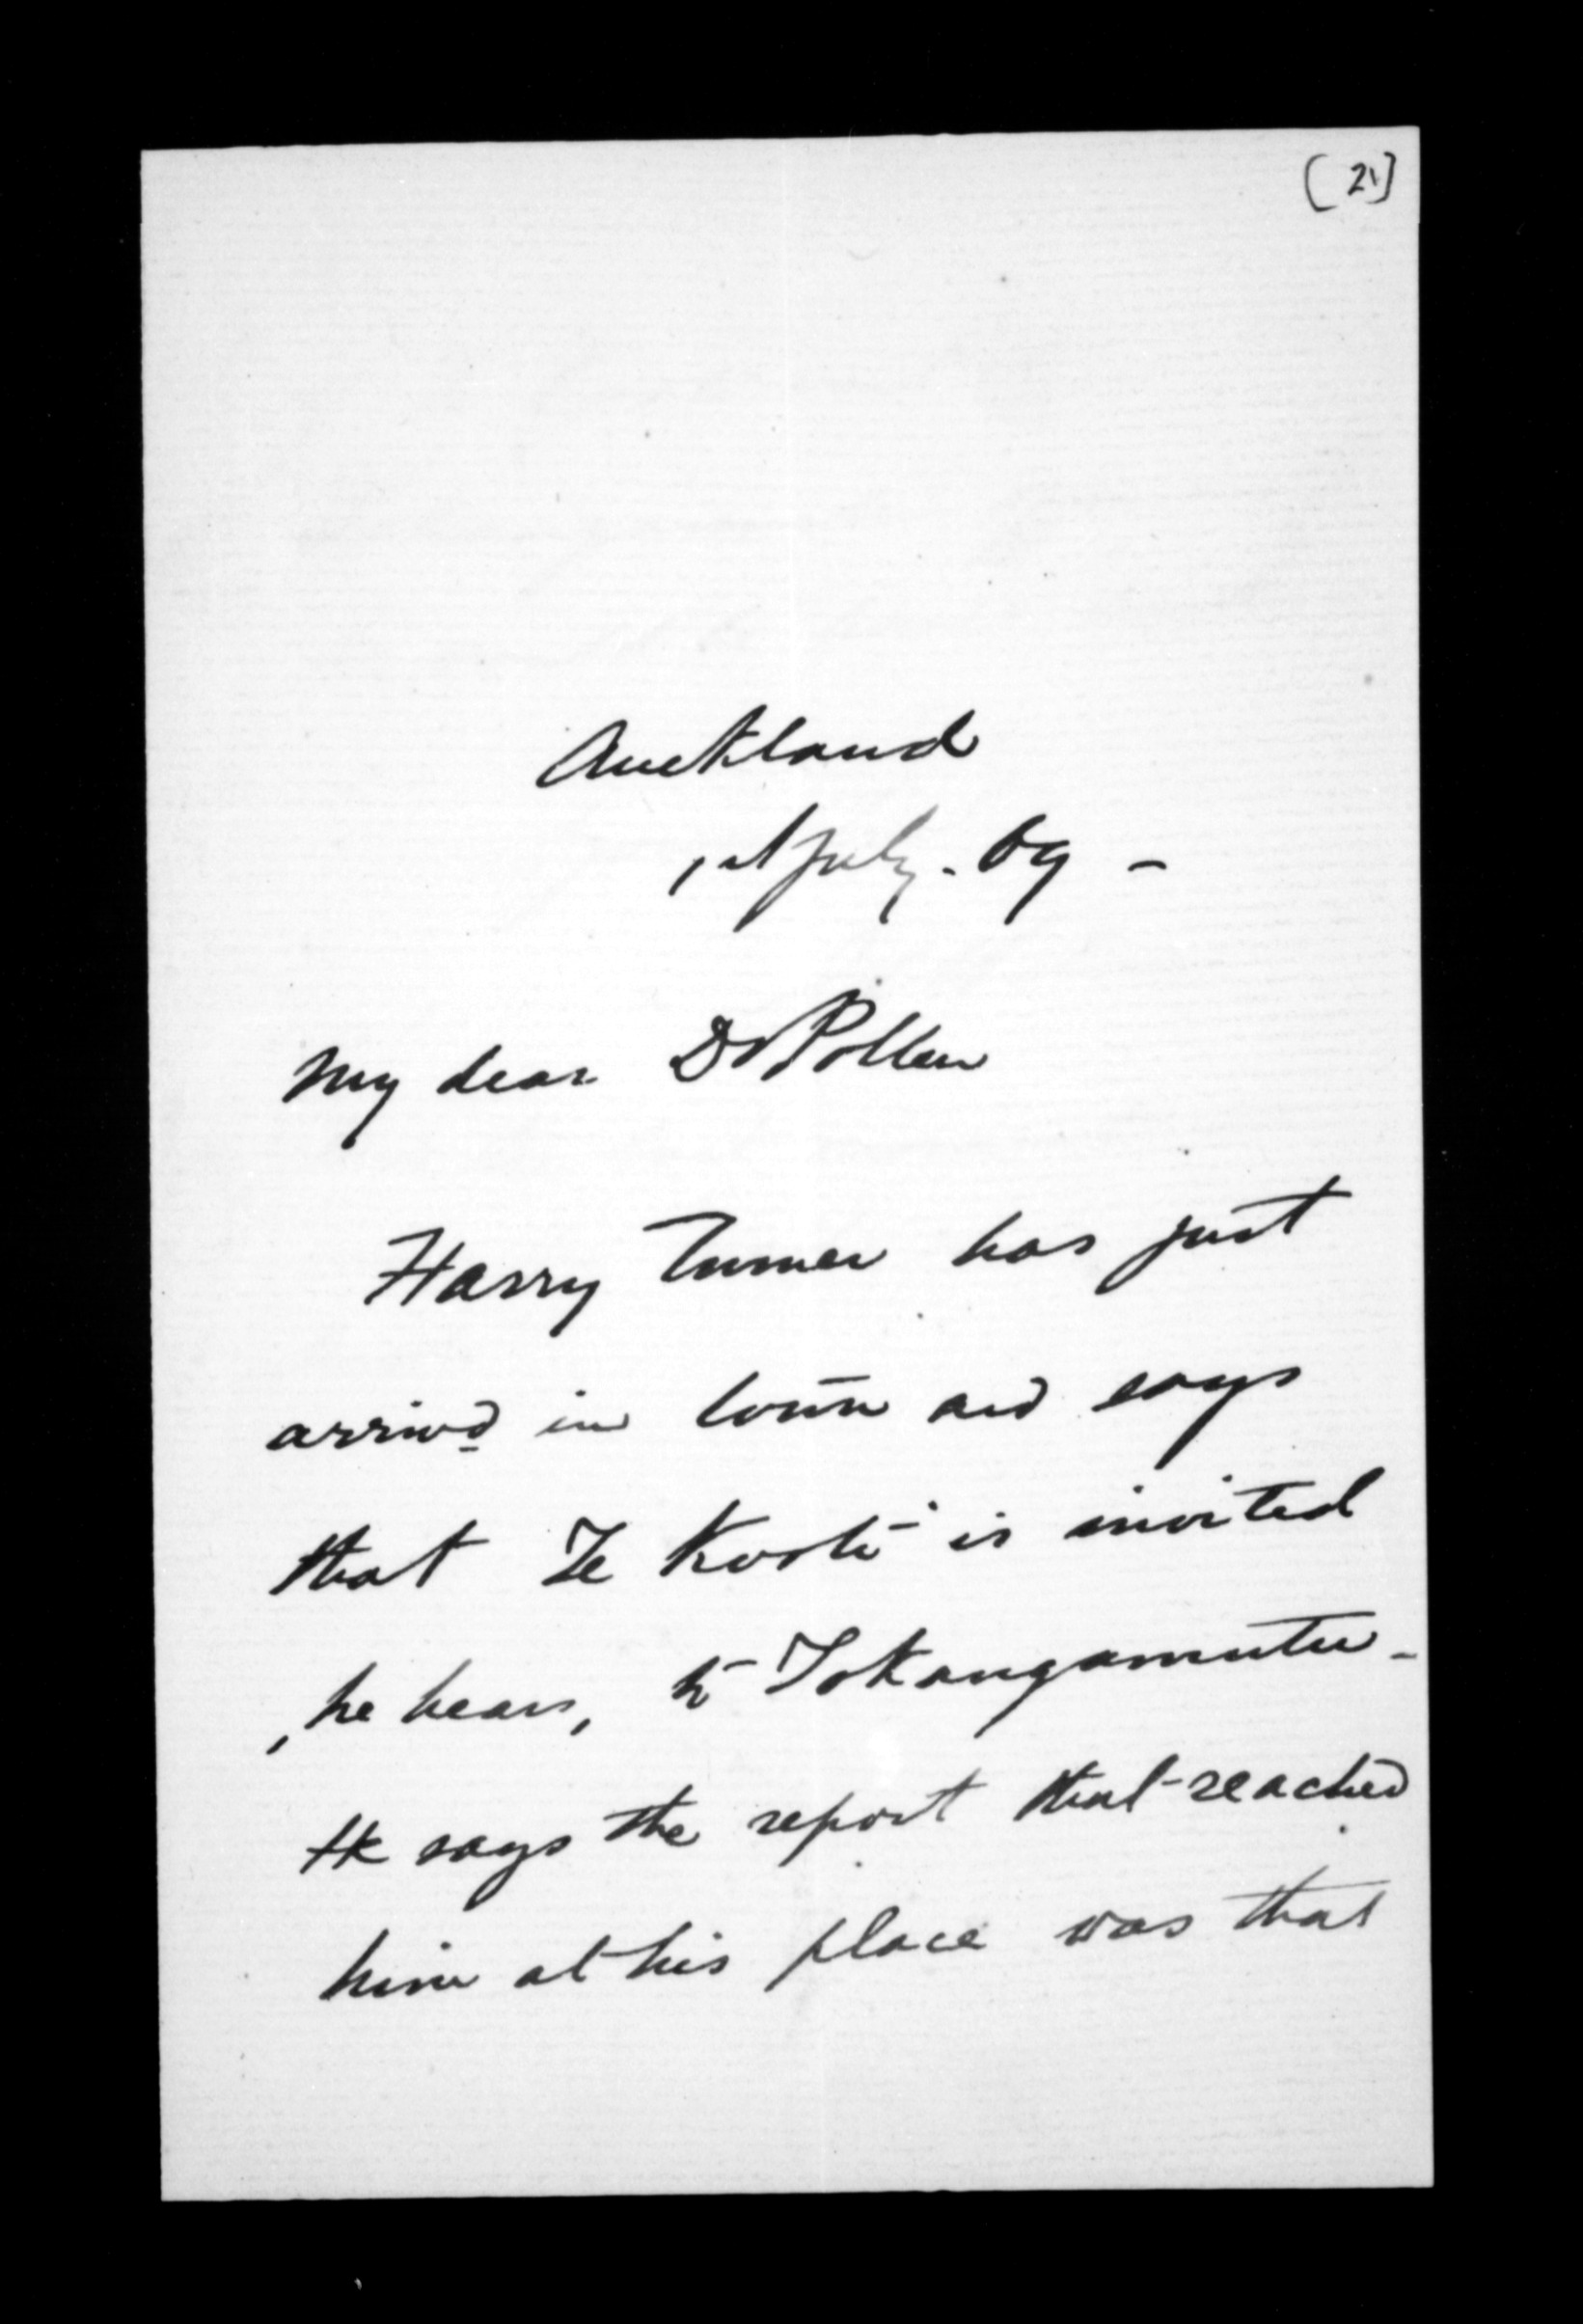 [21]
Auckland
1st July. 69 -
My dear Dr Pollen
Harry Turner has just
arrivd in town and says
that Te Kooti is invited
, he hears, to Tokangamutu -
He says the report that reached
him at his place was that